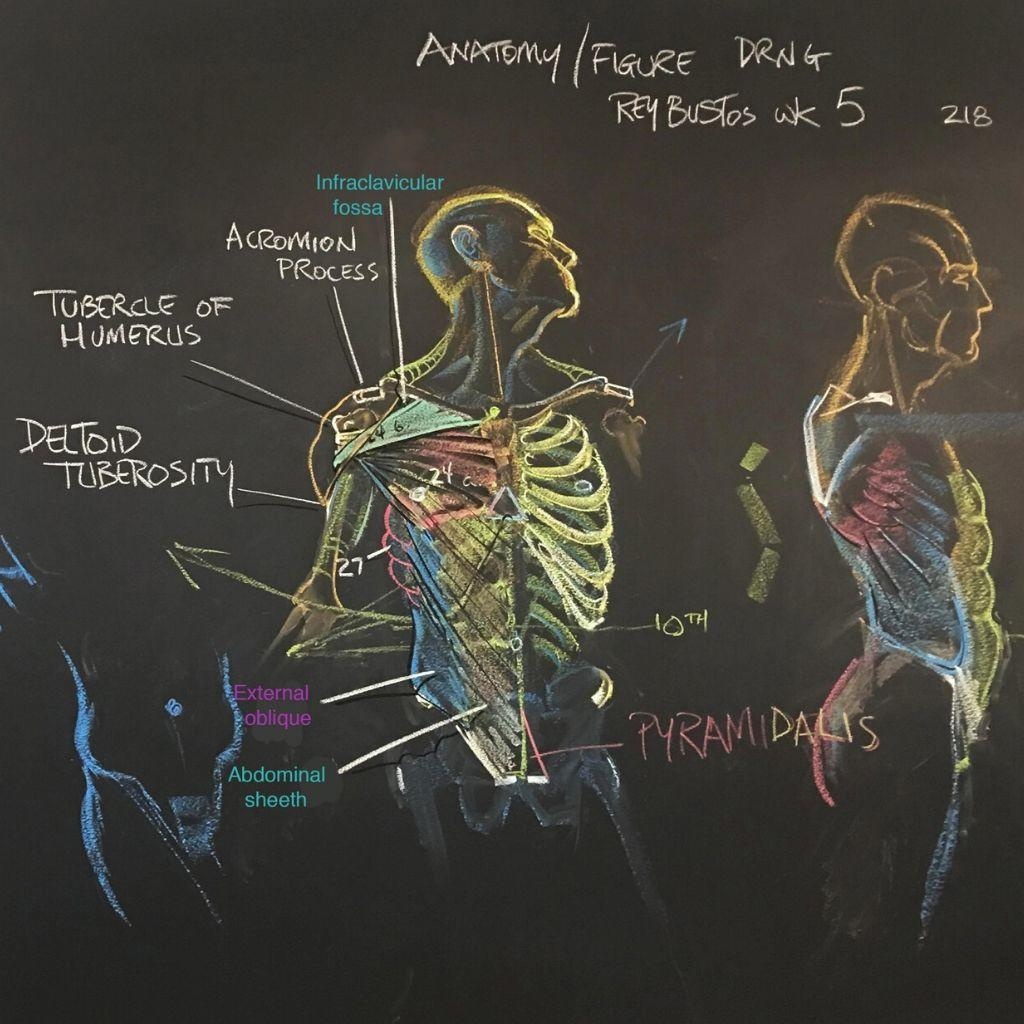 ANATOMY/FIGURE DRNG
REY BUSTOS WK 5
218
Infraclavicular
fossa
ACROMION
PROCESS
TUBERCLE OF
HUMERUS
DELTOID
TUBEROSITY
24
6
24
27
10TH
External
oblique
PYRAMIDALIS
Abdominal
sheeth